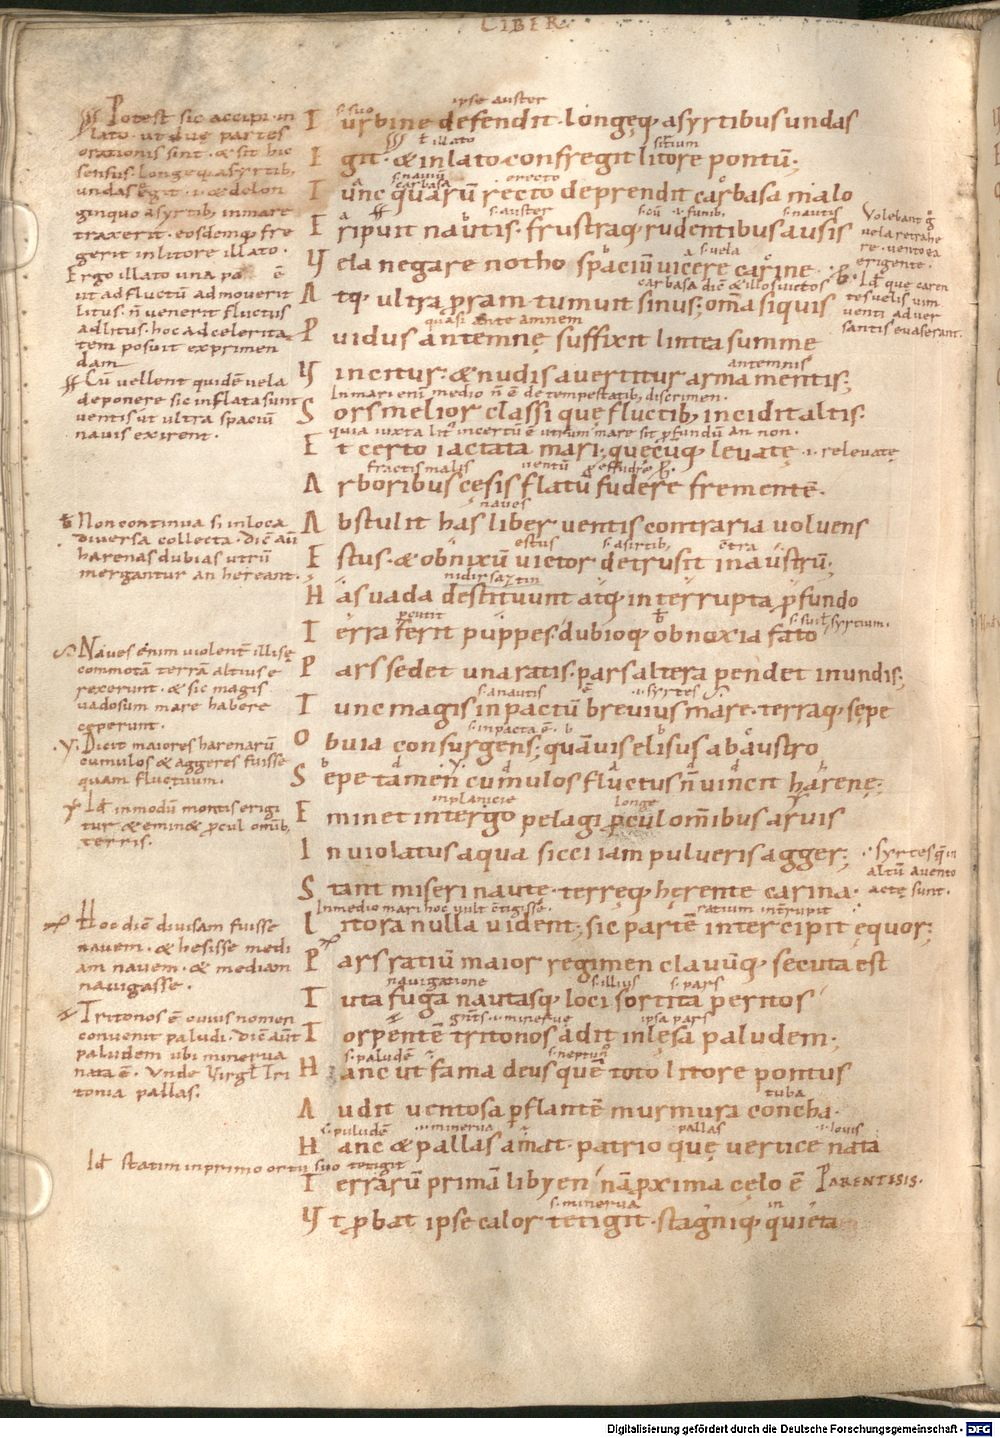 LIBER
ipse auster
s. suo
T urbine defendit· longeq; asyrtibus undas
ł illato
sirtium
E git· & inlato confregit litore pontū;
s. naviū
carbasa
erecto
T unc quarū recto deprendit carbasa malo
s. auster
s. cū ·i· funib;
s. nautis
E ripuit nautis· frustraq; rudentibus ausis
a s. vela
V ela negare notho spaciū vicere carine·
carbasa diē & illos victos
A tq; ultra pram tumuit sinus; oma siquis
quasi ante amnem
P uidus antemnę suffixit lintea summe
antemnis
V incitur: & nudis avertitur armamentis;
In mari eni medio ñ ē de tempestatib; discrimen·
S ors melior classi quę fluctib; incidit altis·
quia iuxta lit incertū ē utrum mare sit pfundū an non·
E t certo iactata mari; quecūq; levatę ·i· relevatę
fractis malis
ventū
A rboribus cęsis flatū fudere frementē·
naves
A bstulit has liber ventis contraria voluens
estus
s. asirtib;
ctra
E stus· & obnixū victor detrusit in austrū;
H as vada destituunt atq; interrupta pfundo
percutit
T erra ferit puppes· dubioq; obnoxia fato
P ars sedet una ratis· pars altera pendet in undis;
s. anautis
·i· syrtes
T unc magis inpactū brevius mare· terraq; sępe
s. inpacta ē·
O bvia consurgens; quāvis elisus ab austro
S epe tamen cumulos fluctus ñ vincit harenę;
in planicie
longe
E minet in tergo pelagi pcul omībus arvis
I nviolatus aqua sicci iam pulveris agger;
S tant miseri nautę· terręq; hęrente carina·
In medio mari hoc vult ctigisse·
ratium intrupit
L itora nulla vident; sic partē intercipit ęquor;
P ars ratiū maior regimen clavūq; secuta est
navigatione
s. illius
s. pars
T uta fuga nautasq; loci sortita peritos
gnts· ·i· minervę
ipsa pars
T orpentē tritonos adit inlęsa paludem;
s. paludē
s. neptun
H anc ut fama deus quē toto litore pontus
tuba
A udit ventosa pflantē murmura concha·
s. paludē
·i· minerva
pallas
·i· iovis
H anc & pallas amat· patrio quę vertice nata
T errarū primā libyen nā pxima cęlo ē PARENTESIS·
s. minerva
in
V t pbat ipse calor tetigit· stagniq; quieta
Potest sic accipi· in
lato· ut duę partes
orationis sint· & sit hic
sensus· Longe q; asyrtib;
undas egit· ·i· & de lon
ginquo asyrtib; in mare
traxerit· eosdemq; fre
gerit in litore illato·
Ergo illato una pars ē
ut ad fluctū admoverit
litus· ñ venerit fluctus
ad litus· hoc ad celerita
tem posuit exprimen
dam·
Cū vellent quidē vela
deponere sic inflata sunt
ventis ut ultra spaciū
navis exirent·
Non continua s; in loca
diversa collecta· Diē aū
harenas dubias utrū
mergantur an hereant·
Naves enim violent illisę
commotā terrā altius e
rexerunt· & sic magis
vadosum mare habere
ceperunt·
Dicit maiores harenarū
cumulos & aggeres fuisse
quam fluctuum·
Id in modū montis erigi
tur & emin& pcul omīb;
terris·
Hoc diē divisam fuisse
navem· & hesisse medi
am navem· & mediam
navigasse·
Tritonos ē cuius nomen
convenit paludi· Diē aūt
paludem ubi minerva
nata ē· Unde Virgł Tri
tonia pallas·
Id statim in primo ortu suo tetigit
Volebant g
vela retrahe
re· vento ea
erigente·
Id que caren
tes velis vim
venti adver
santis evaserant·
Syrtes q in
altū a vento
actę sunt·
Digitalisierung gefördert durch die Deutsche Forschungsgemeinschaft - DFG